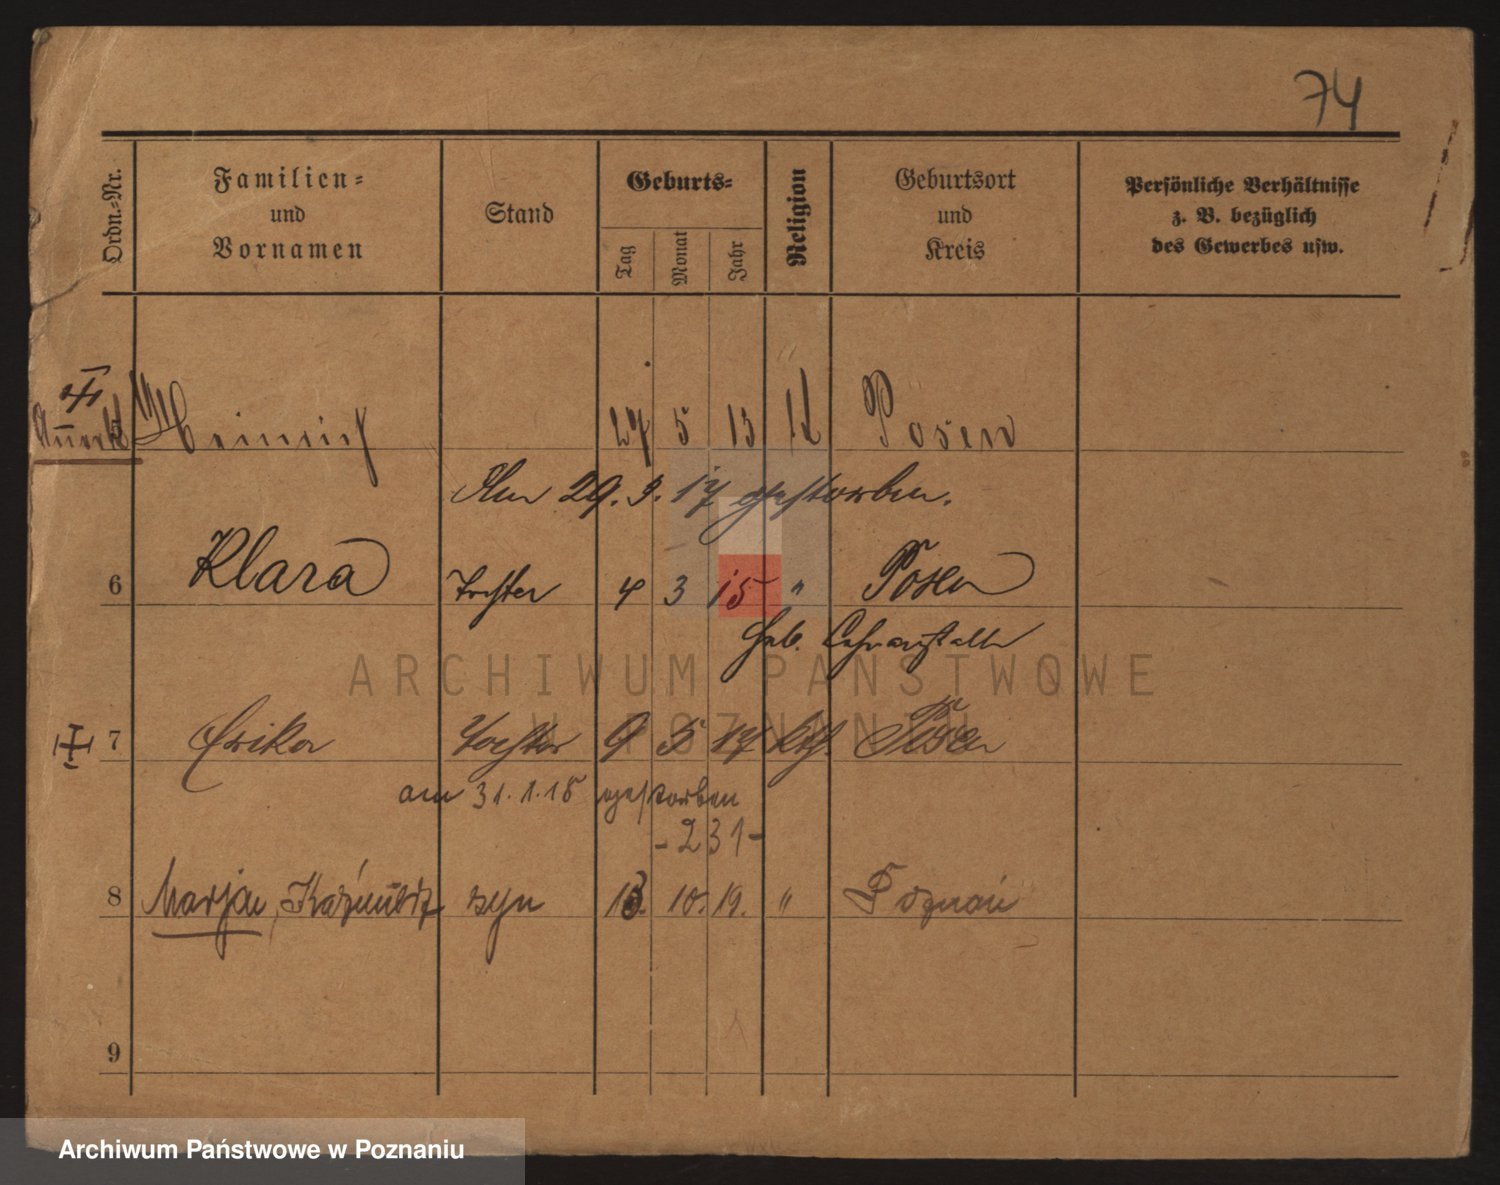 74
Ordn.-Nr.
Familien-
und
Vornamen
Stand
Geburts-
Tag
Monat
Jahr
Religion
Geburtsort
und
Kreis
Persönliche Verhältnisse
z. B. bezüglich
des Gewerbes usw.
5 Heinrich 27 5 13 Posen
Am 29. 3. 17 gestorben.
6 Klara Tochter 4 3 15 " Posen
Heb. Lehranstalt
7 Erika Tochter 9 5 17 kth. Posen
am 31.1.18 gestorben
- 231 -
8 Marjan, Kaźmierz syn 13. 10. 19. " Poznań
9
ARCHIWUM PAŃSTWOWE
W POZNANIU
Archiwum Państwowe w Poznaniu